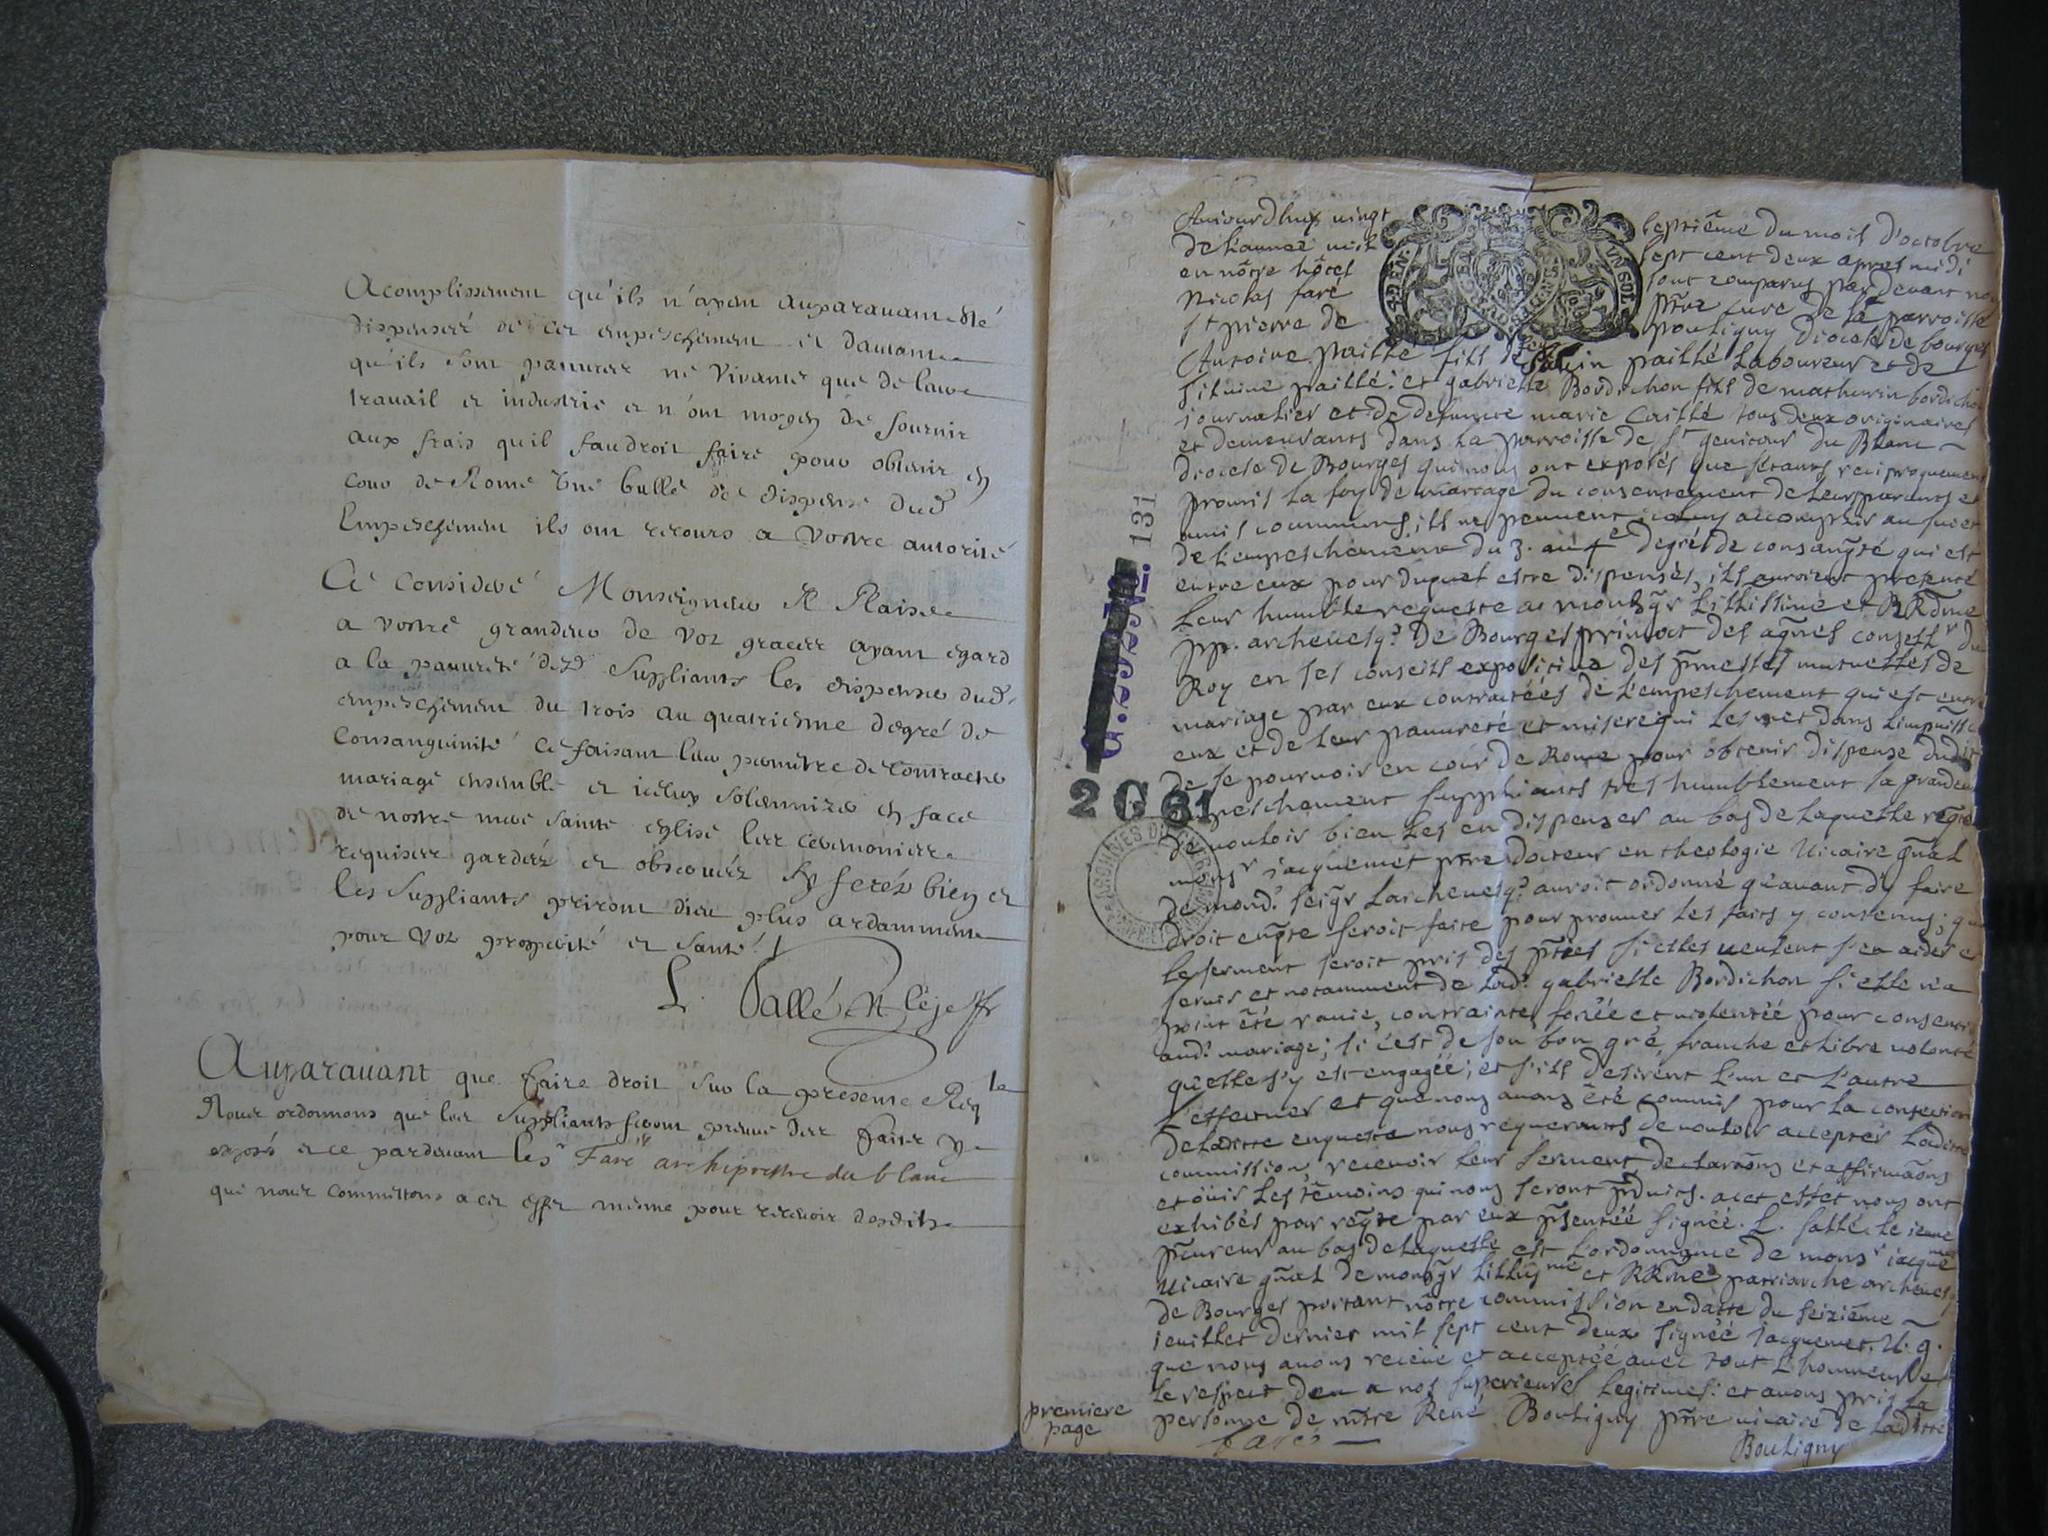 Acomplissement qu'ils n'ayen auparauant esté
dispensez de cet empeschement et dautant
qu'ils sont pauures ne viuants que de leur
trauail et industrie et n'ont moyen de fournir
aux frais quil faudroit faire pour obtenir en
cour de Rome une bulle de dispense dud.
Empeschement ils ont recours a vostre autorité
Ce consideré Monseigneur Il Plaise
a vostre grandeur de voz graces ayant egard
a la pauureté desd. suppliants les dispenser dud.
empeschement du trois au quatriesme degré de
consanguinité ce faisant leur permettre de contracter
mariage ensemble et iceluy solemnizer en face
de nostre mere sainte eglise les ceremonies
requises gardéz et obseruéz Sy feréz bien et
les suppliants priront dieu plus ardamment
pour voz prosperité et santé
L. Sallé le je
Auparauant que faire droit sur la presente Reqte
Nous ordonnons que les suppliants feront preuue des faits y
exposés et ce pardeuant le Sr Faré archiprestre du blanc
que nous commettons a cet effet mesme pour receuoir desdits
Auiourdhuy uingt septiéme du mois d'octobre
de L'année mil sept cent deux apres midi
en nôtre hôtel sont comparus par deuant nous
Nicolas faré ptre curé de la parroisse
St pierre de pouligny diocese de bourges
4 DEN. UN SOL
Antoine paillé fils de feu paillé Laboureur et de
Siluine paillé: et gabrielle Bordichon fille de mathurin bordichon
iournalier et de defuncte marie Caillé tous deux originaires
et demeurants dans la parroisse de St genitour du Blanc
diocese de Bourges qui nous ont exposés que s'etants reciproquement
promis la foy de mariage du consentement de leurs parents et
amis communs, ils ne peuuent iceluy accomplir au suiet
de L'empeschement du 3. au 4e degré de consangté qui est
entre eux pour duquel estre dispensés, ils auroient presenté
Leur humble requeste a monsgr L'illistime et RRdme
pp. archeuesq? de Bourges primat des aqnes conseller du
Roy en ses conseils expositiue des pmesses mutuelles de
mariage par eux contractées de L'empeschement qui est entre
eux et de leur pauureté et misere qui les met dans L'impuissce
de se pouruoir en cour de Rome pour obtenir dispense dudit
empeschement suppliants tres humblement sa grandeur
de uouloir bien les en dispenser au bas de laquelle reqte
monsr jacquemet ptre docteur en theologie Uicaire gnal
de mond. seigr L'archeuesq? auroit ordonné qu'auant d'y faire
droit enqte seroit faite pour prouuer les faits y contenus; que
le serment seroit pris des pties si elles ueulent s'en aider et
seruir et notamment de Lad. gabrielle Bordichon si elle n'a
point été rauie, contrainte, forcée et uiolentée pour consentir
aud. mariage; si c'est de son bon gré, franche et libre uolonté
qu'elle s'y est engagée; et s'ils desirent L'un et L'autre
L'effectuer et que nous auons été commis pour la confection
de Ladite enqueste nous requerants de uouloir accepter Ladite
commission, receuoir leur serment declaraons et affirmaons
et oüir les témoins qui nous seront pduits. a cet effet nous ont
exhibés par reqte par eux psentéé signéé. L. Sallé. le ieune
pcureur au bas de laquelle est L'ordonnance de monsr jacquemet
Uicaire gnal de monsgr L'illusme et RRme patriarche archeuesq
de Bourges portant nôtre commission en datte du seiziéme
ieuillet dernier mil sept cent deux signéé jacquemet. U. g.
que nous auons receue et acceptéé auec tout L'honneur et
le respect deu a nos superieurs legitimes: et auons pris la
personne de mtre René Bouligny ptre uicaire de Ladite
premiere
page
faré
Bouligny
131
2 G 61
ARCHIVES DU CHER